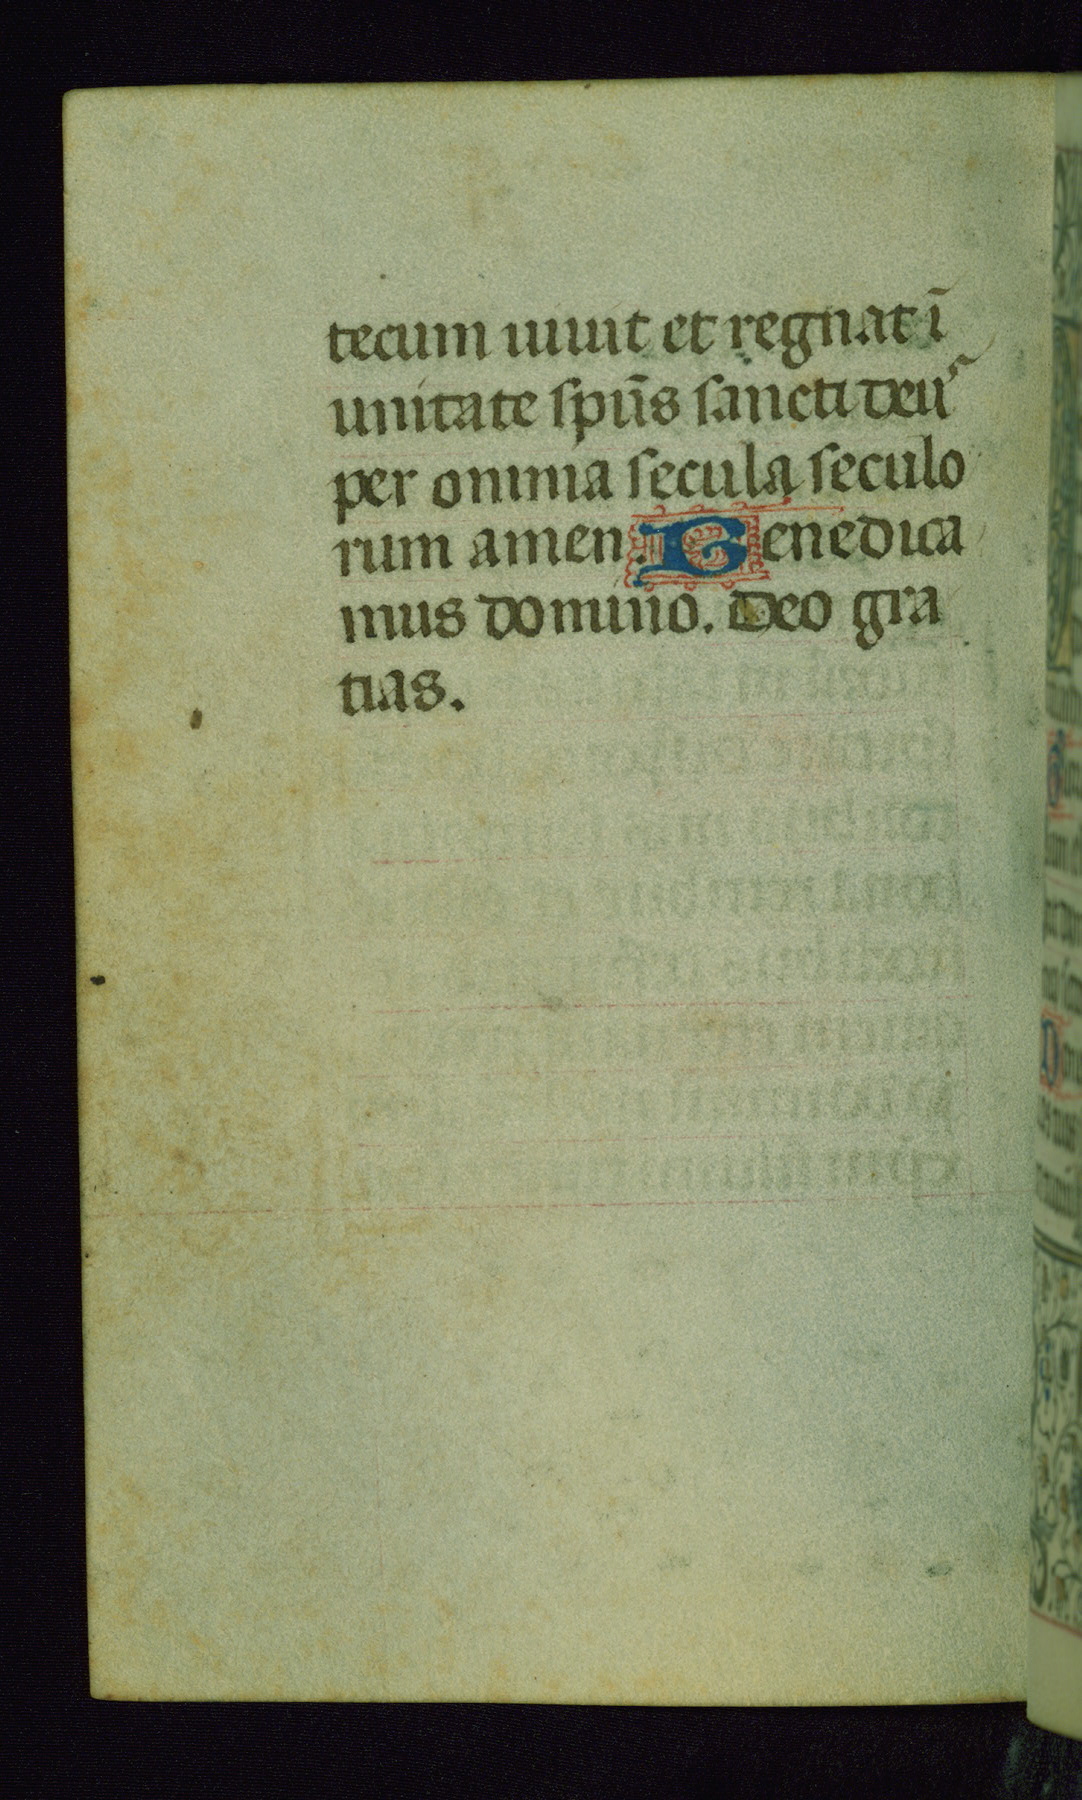 tecum uiuit et regnat ī
unitate spūs sancti deꝰ
per omnia secula seculo
rum amen. Benedica
mus domino. Deo gra
tias.